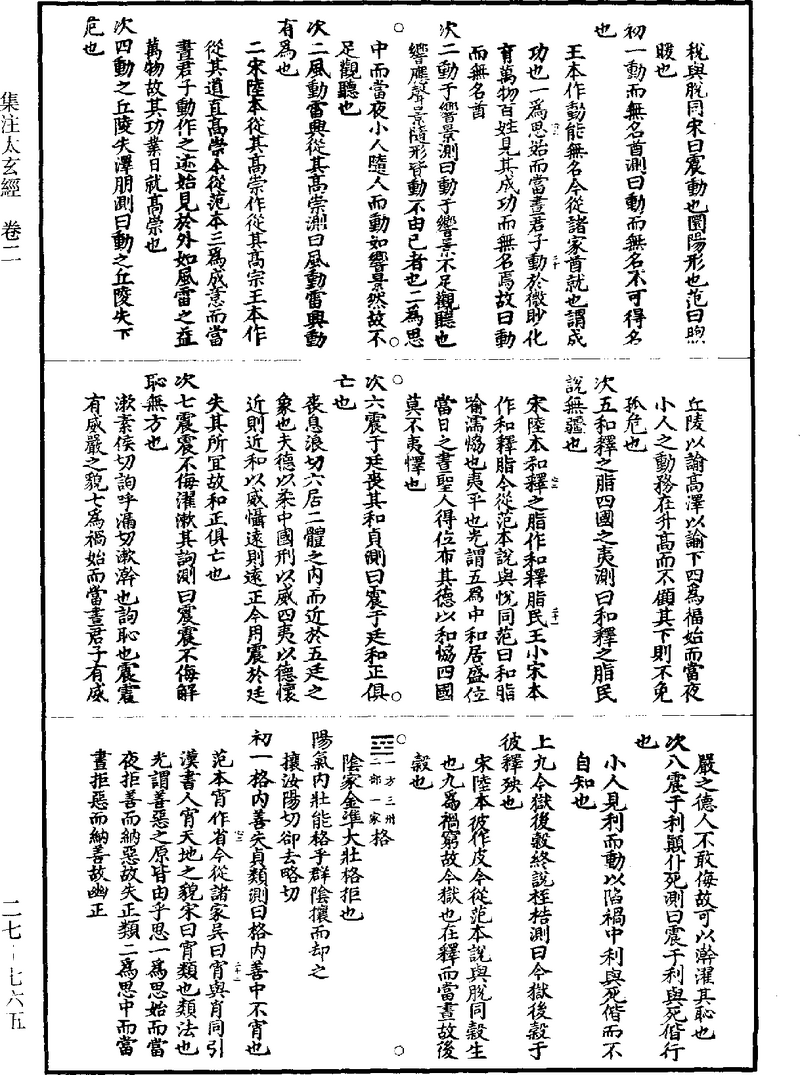 稅與脫同宋曰震動也圜陽形也范曰煦
暖也
初一動而無名酋測曰動而無名不可得名
也
王本作動能無名今從諸家酋就也謂成
功也一為思始而當晝君子動於微眇化
育萬物百姓見其成功而無名焉故曰動
而無名酋
次二動于響景測曰動于響景不足觀聽也
響應聲景隨形皆動不由己者也二為思
中而當夜小人隨人而動如響景然故不
足觀聽也
次二風動雷興從其高崇測曰風動雷興動
有為也
二宋陸本從其高崇作從其高宗王本作
從其道直高崇今從范本三為成意而當
晝君子動作之迹始見於外如風雷之益
萬物故其功業日就高崇也
次四動之丘陵失澤朋測曰動之丘陵失下
危也
丘陵以諭高澤以諭下四為福始而當夜
小人之動務在升高而不顧其下則不免
孤危也
次五和釋之脂四國之夷測曰和釋之脂民
說無疆也
宋陸本和釋之脂作和釋脂民王小宋本
作和釋脂今從范本說與悅同范曰和脂
喻濡恊也夷平也光謂五為中和居盛位
當日之晝聖人得位布其德以和恊四國
莫不夷懌也
次六震于廷喪其和貞測曰震于廷和正俱
亡也
喪息浪切六居二體之內而近於五廷之
象也夫德以柔中國刑以威四夷以德懷
近則近和以威懾遠則遠正今用震於廷
失其所宜故和正俱亡也
次七震震不侮濯漱其訽測曰震震不侮解
恥無方也
漱素侯切訽呼漏切漱澣也訽恥也震震
有威嚴之貌七為禍始而當晝君子有威
嚴之德人不敢侮故可以澣濯其恥也
次八震于利顛仆死測曰震于利與死偕行
也
小人見利而動以陷禍中利與死偕而不
自知也
上九今獄後穀終說桎梏測曰今獄後穀于
彼釋殃也
宋陸本彼作皮今從范本說與脫同穀生
也九為禍窮故今獄也在釋而當晝故後
穀也
一方三州
二部一家 格
陰家金準大壯格拒也
陽氣內壯能格乎群陰攘而却之
攘汝陽切卻去略切
初一格內善失貞類測曰格內善中不宵也
范本宵作省今從諸家吳曰宵與肖同引
漢書人宵天地之貌宋曰宵類也類法也
光謂善惡之原皆由乎思一為思始而當
夜拒善而納惡故失正類二為思中而當
晝拒惡而納善故幽正
集注太玄經 卷二
二七－七六五